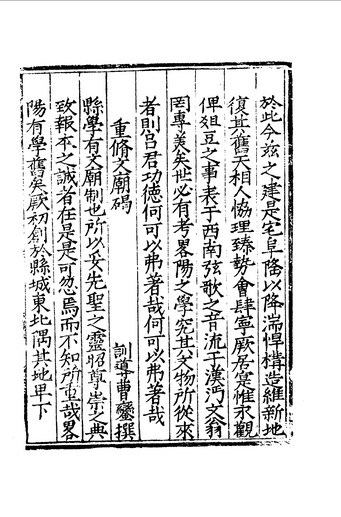 於此今兹之建是宅阜降以降湍悍構造維新地
復其舊天相人恊理臻勢會肆寧厥居寔惟永觀
俾俎豆之事表于西南弦歌之音流于漢沔文翁
罔專美矣世必有考畧陽之學究其文物所從來
者則宫君功德何可以弗著哉何可以弗著哉
重修文廟碣
訓導曹鑾撰
縣學有文廟制也所以妥先聖之靈昭尊崇之典
致報本之誠者在是是可忽焉而不知所重哉畧
陽有學舊矣厥初創於縣城東北隅其地卑下